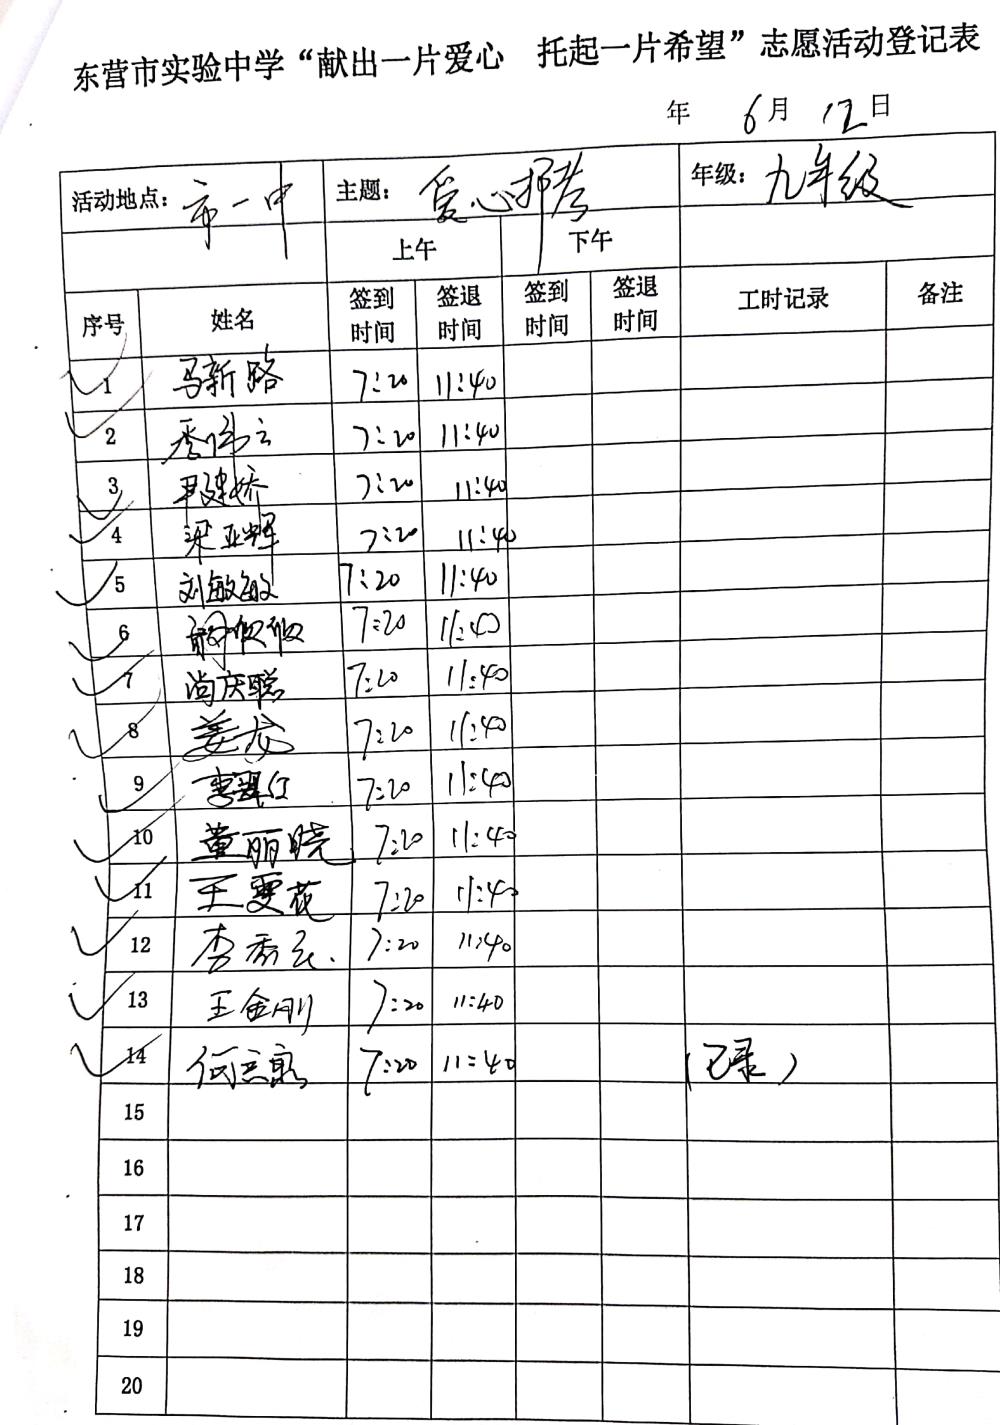 东营市实验中学“献出一片爱心 托起一片希望”志愿活动登记表
年 6月 12日
活动地点：市一中 主题：爱心护考 年级：九年级
上午 下午
序号 姓名 签到时间 签退时间 签到时间 签退时间 工时记录 备注
1 马新路 7:20 11:40
2 7:20 11:40
3 尹建娇 7:20 11:40
4 梁亚辉 7:20 11:40
5 刘敏敏 7:20 11:40
6 7:20 11:40
7 尚庆聪 7:20 11:40
8 姜龙 7:20 11:40
9 7:20 11:40
10 董丽晓 7:20 11:40
11 王雯花 7:20 11:40
12 7:20 11:40
13 王金刚 7:20 11:40
14 7:20 11:40 （记录）
15
16
17
18
19
20